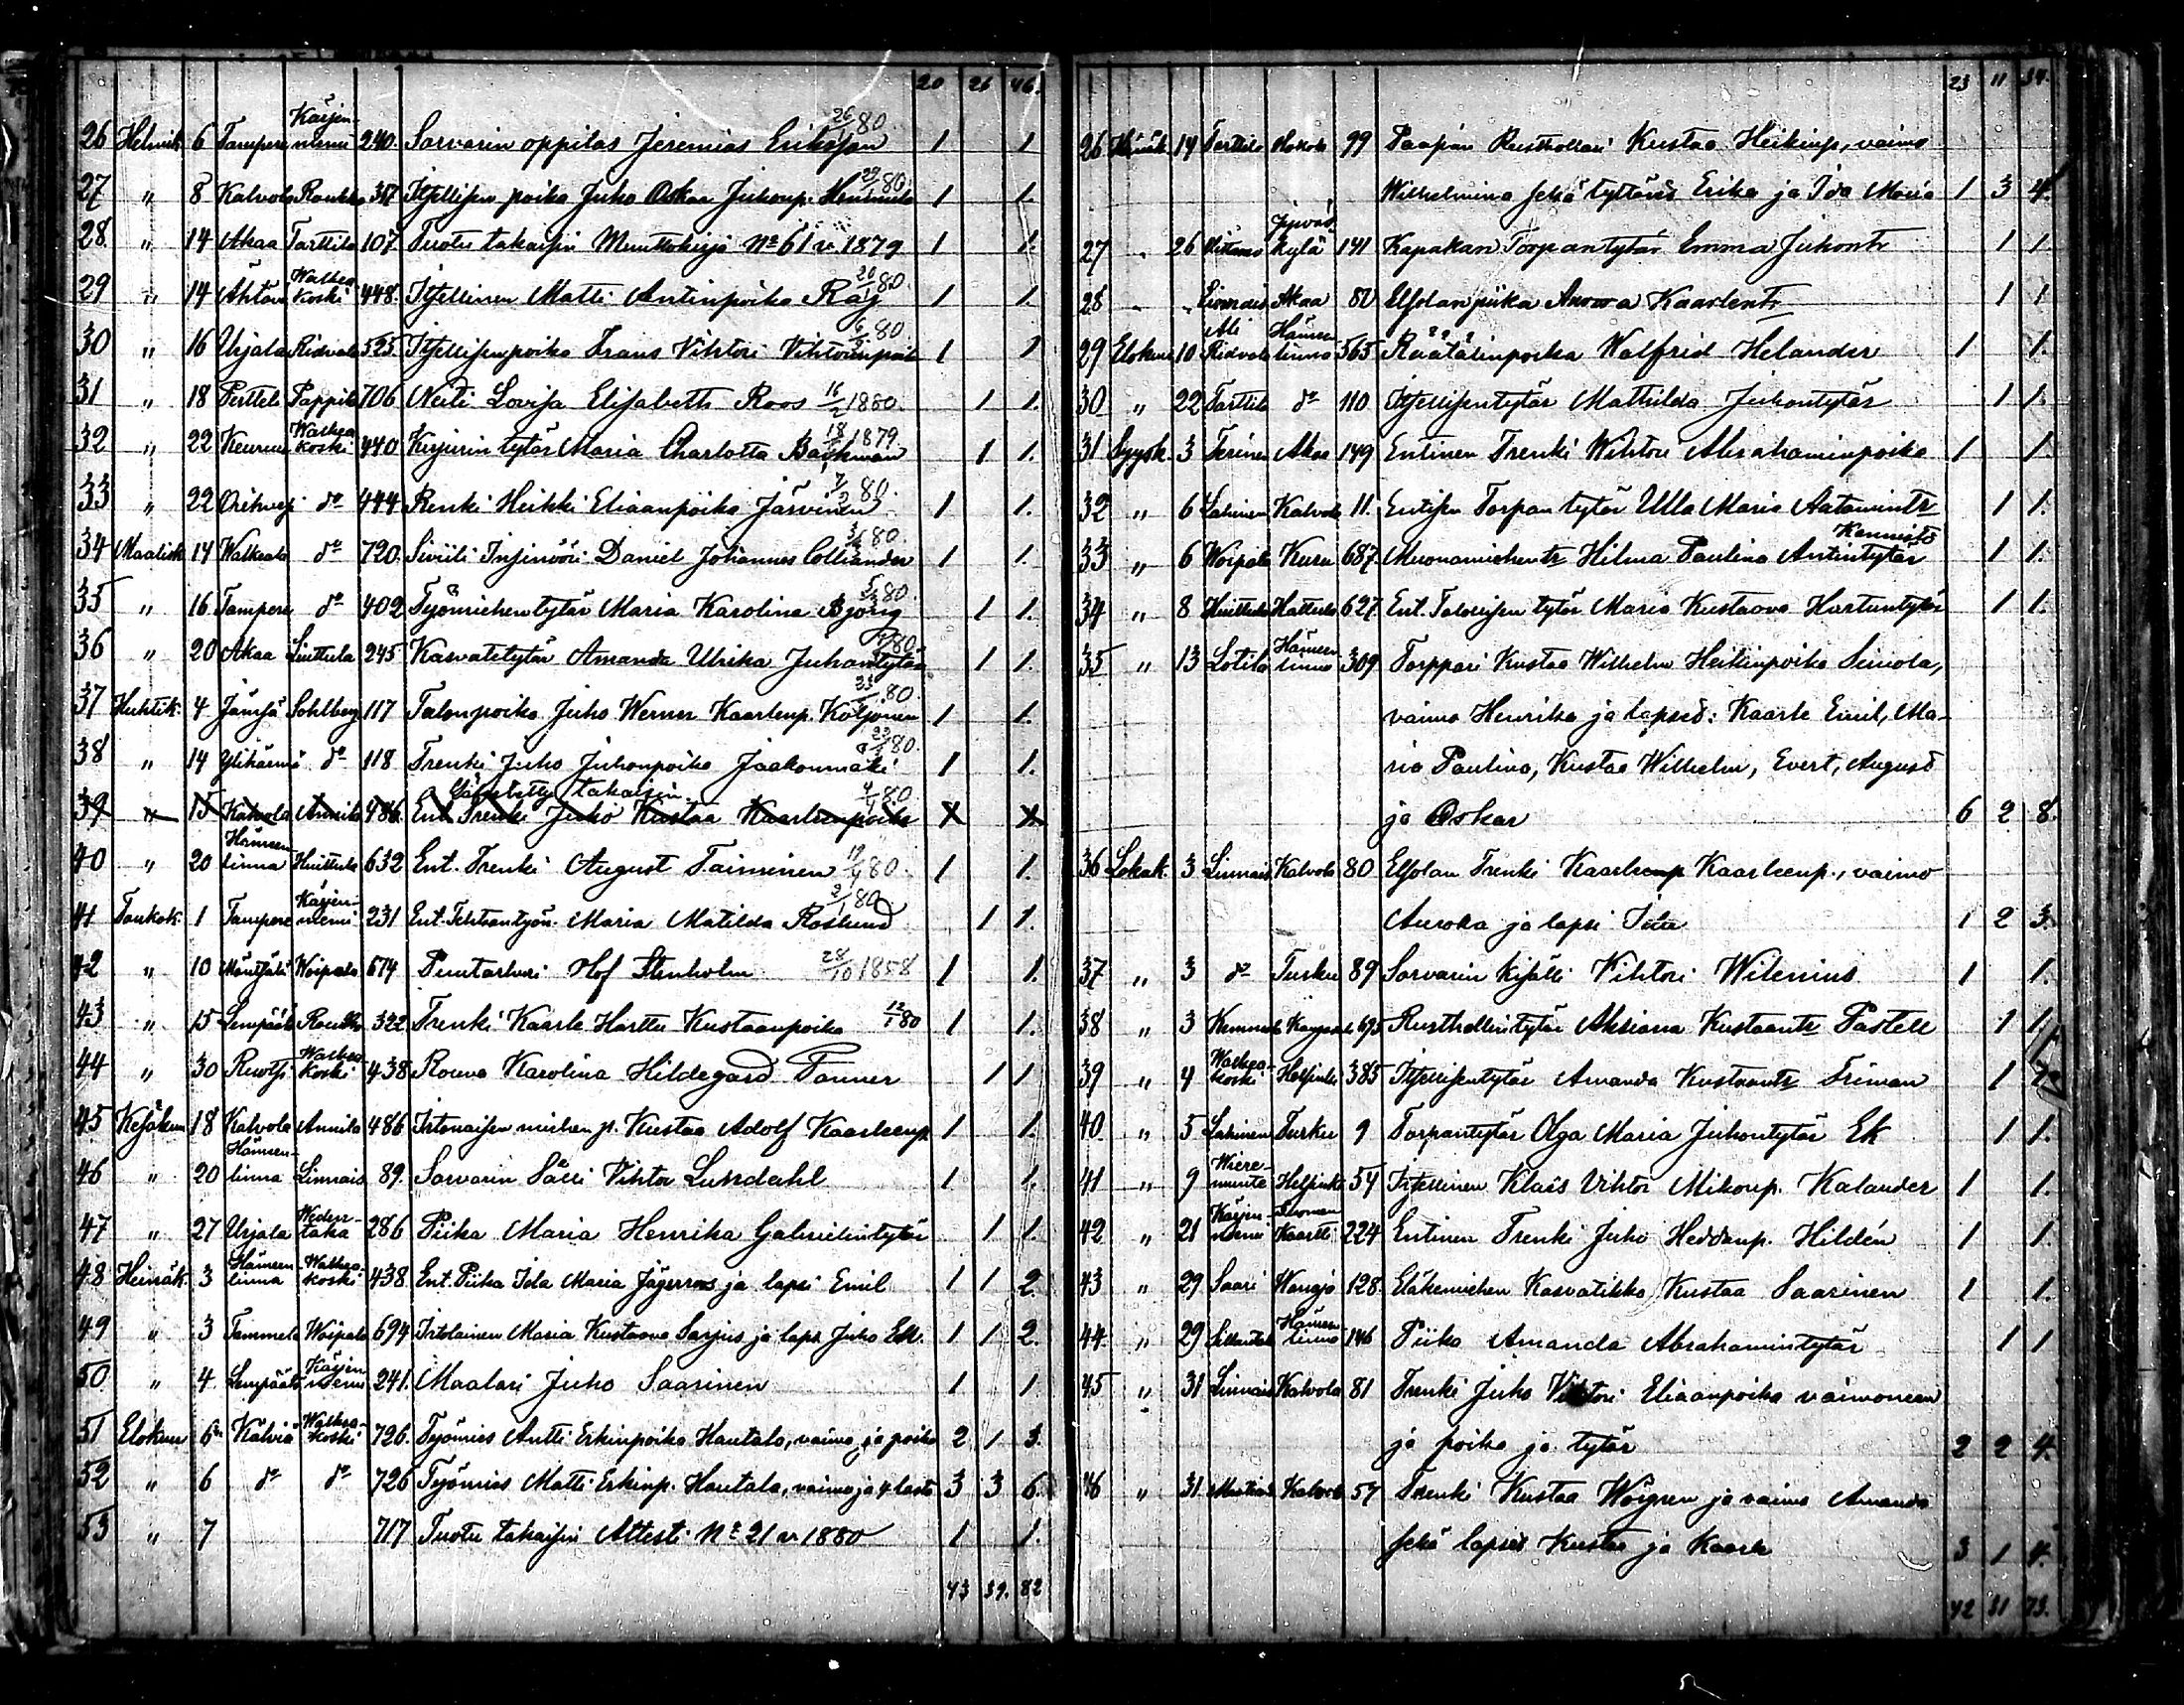 20 26 46.
26 Helmik. 6 Tampere Käijenniemi 240. Sorvarin oppilas Jeremias Eriksson 26/1 80 1 1
27 " 8 Kalvola Raukko 317 Itsellisen poika Juho Oskar Juhonp. 29/1 80 1 1.
28. " 14 Akaa Tarttila 107. Tuotu takaisin Muuttokirja No 61 v. 1879 1 1.
29 " 14 Ähtäri Walkeakoski 448. Itsellinen Matti Antinpoika Raj 20/1 80 1 1.
30 " 16 Urjala Ridvala 525. Itsellisenpoika Frans Vihtori Vihtorinpoik 6/2 80 1 1
31 " 18 Pertteli Pappila 706 Neiti Lovisa Elisabeth Roos 16/2 1880. 1 1.
32 " 22 Keuruu Walkeakoski 440 Kirjurin tytär Maria Charlotta Backman 18/ 1879. 1 1.
33 " 22 Orihvesi do 444 Renki Heikki Eliaanpoika Järvinen 7/2 80. 1 1.
34 Maalisk. 14 Walkeala do 720. Siviili Insinööri Daniel Johannes Colliander 3/ 80. 1 1.
35 " 16 Tampere do 402 Työmiehentytär Maria Karolina Björig 5/3 80. 1 1.
36 " 20 Akaa Liuttula 245 Kasvatetytär Amanda Ulrika Juhontytär 80. 1 1.
37 Huhtik. 4 Jämsä Sohlberg 117 Talonpoika Juho Werner Kaarlenp. Kotjonen 23/ 80. 1 1.
38 " 14 Ylihärmä do 118 Trenki Juho Juhonpoika Jaakonmäki 22/3 80. 1 1.
Lähetetty takaisin
39 " 15 Kalvola Annila 486. Ent Trenki Juho Kustaa Kaarlenpoika 4/4 80. X X
40 " 20 Hämeenlinna Huittula 632 Ent. Trenki August Taiminen 19/4 80. 1 1.
41 Toukok. 1 Tampere Käijenniemi 231 Ent. Tehtaantyön. Maria Matilda Roslund 2/1 80 1 1.
42 " 10 Woipala 674 Puutarhuri Olof Stenholm 28/10 1858 1 1.
43 " 15 Lempäälä Raukko 322 Trenki Kaarle Harttu Kustaanpoika 12/5 80 1 1.
44 " 30 Ruotsi Walkeakoski 438 Rouva Karolina Hildegard Tanner 1 1
45 Kesäkuu 18 Kalvola Annila 486 Irtonaisen miehen p. Kustaa Adolf Kaarleenp 1 1.
46 " 20 Hämeenlinna Linnais 89. Sorvarin Sälli Vihtor Lundahl 1 1.
47 " 27 Urjala Wedentaka 286 Piika Maria Henrika Gabrielintytär 1 1
48 Heinäk. 3 Hämeenlinna Walkeakoski 438. Ent. Piika Ida Maria Jägerroos ja lapsi Emil 1 1 2.
49 " 3 Tammela Woipala 694 Irtolainen Maria Kustaava Sarjus ja lapsi Juho Ek. 1 1 2.
50. " 4 Lempäälä Käijenniemi 241. Maalari Juho Saarinen 1 1
51 Elokuu 6 Kälviä Walkeakoski 726. Työmies Antti Erkinpoika Hautala, vaimo ja poika 2 1 3.
52 " 6 do do 726 Työmies Matti Erkinp. Hautala, vaimo ja 4 lasta 3 3 6.
53 " 7 717 Tuotu takaisin Attesti No 21 v 1880 1 1.
43 39. 82
23 11 34.
26 Heinäk. 14 Tarttila Hokola 99 Paapan Rusthollari Kustaa Heikinp, vaimo
Wilhelmina sekä tyttäret Erika ja Ida Maria 1 3 4.
27 " 26 Jyväskylä 141 Kapakan Torpantytär Emma Juhontr 1 1
28 " " Linnais Akaa 80 Elsolan piika Anna Kaarlentr 1 1
29 Elokuu 10 Ali Ridvala Hämeenlinna 565 Räätälinpoika Walfrid Helander 1 1.
30 " 22 Tarttila do 110 Itsellisentytär Mathilda Juhontytär 1 1.
31 Syysk. 3 Akaa 149 Entinen Trenki Wihtori Abrahaminpoika 1 1.
32 " 6 Lahinen Kalvola 11. Entisen Torpan tytär Ulla Maria Aatamintr 1 1.
33 " 6 Woipala Kuru 687. Muonamiehentr Hilma Paulina Antintytär Kannisto 1 1.
34 " 8 Huittula Hattula 627. Ent. Talollisen tytär Maria Kustaava Hartuntytär 1 1.
35 " 13 Lotila Hämeenlinna 309. Torppari Kustaa Wilhelm Heikinpoika Simola,
vaimo Henrika ja lapset: Kaarle Emil, Ma-
ria Paulina, Kustaa Wilhelm, Evert, August
ja Oskar 6 2 8.
36 Lokak. 3 Linnais Kalvola 80 Elsolan Trenki Kaarleenp Kaarleenp., vaimo
Aurora ja lapsi Ida 1 2 3.
37 " 3 do Turku 89 Sorvarin kisälli Vihtori Wilenius 1 1.
38 " 3 693 Rusthollintytär Aksiana Kustaantr Pastell 1 1.
39 " 4 Walkeakoski Helsinki 385 Itsellisentytär Amanda Kustaantr Friman 1
40 " 5 Lahinen Turku 9 Torpantytär Olga Maria Juhontytär Ek 1 1.
41 " 9 Helsinki 54 Itsellinen Klais Vihtor Mikonp. Kalander 1 1.
42 " 21 Käijenniemi Kaartti 224 Entinen Trenki Juho Heddanp. Hildén 1 1.
43 " 29 Saari Wanaja 128. Eläkemiehen Kasvatikko Kustaa Saarinen 1 1.
44 " 29 Hämeenlinna 146 Piika Amanda Abrahamintytär 1 1
45 " 31 Linnais Kalvola 81 Trenki Juho Vihtori Eliaanpoika vaimoneen
ja poika ja tytär 2 2 4.
46 " 31 Kalvola 57 Trenki Kustaa Wörgren ja vaimo Amanda
sekä lapset Kustaa ja Kaarle 3 1 4.
42 31 73.